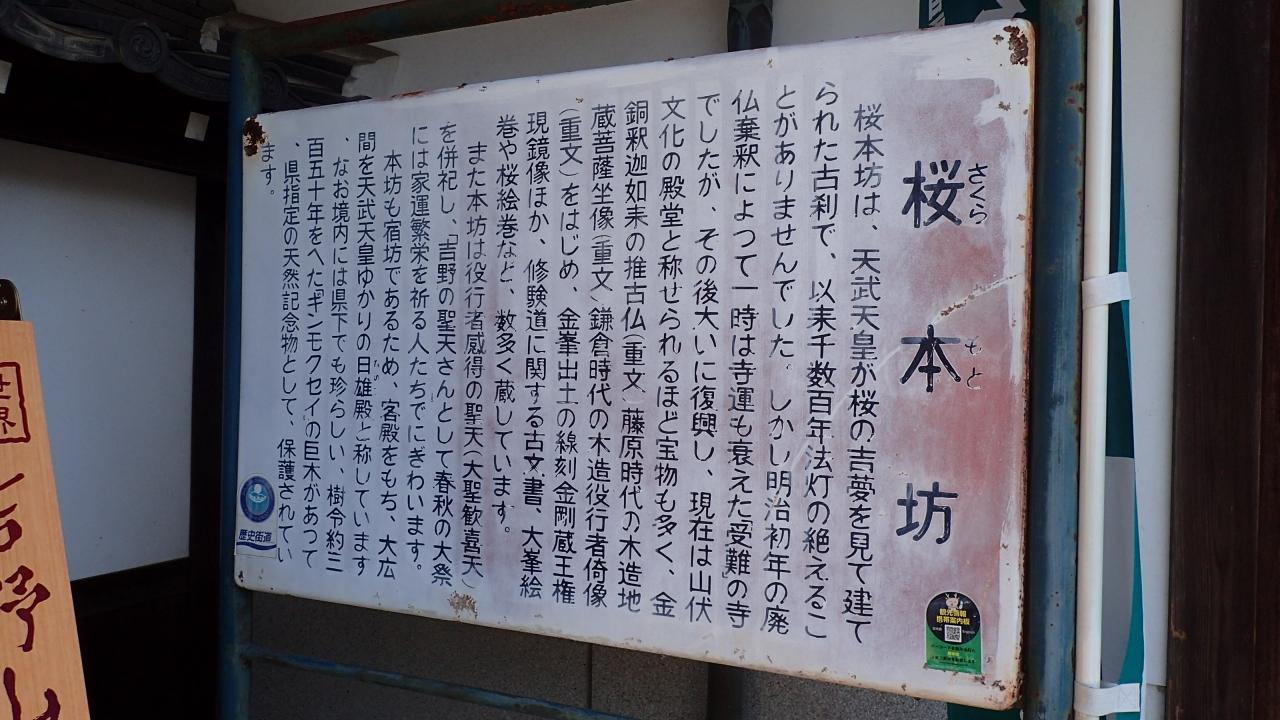 桜本坊
さくら
もと
桜本坊は、天武天皇が桜の吉夢を見て建て
られた古刹で、以来千数百年法灯の絶えるこ
とがありませんでした。しかし明治初年の廃
仏棄釈によつて一時は寺運も衰えた「受難」の寺
でしたが、その後大いに復興し、現在は山伏
文化の殿堂と称せられるほど宝物も多く、金
銅釈迦如来の推古仏(重文)藤原時代の木造地
蔵菩薩坐像(重文)鎌倉時代の木造役行者倚像
(重文)をはじめ、金峯出土の線刻金剛蔵王権
現鏡像ほか、修験道に関する古文書、大峯絵
巻や桜絵巻など、数多く蔵しています。
また本坊は役行者感得の聖天(大聖歓喜天)
を併祀し、「吉野の聖天さんとして春秋の大祭
には家運繁栄を祈る人たちでにぎわいます。
本坊も宿坊であるため、客殿をもち、大広
間を天武天皇ゆかりの日雄殿と称しています
、なお境内には県下でも珍らしい、樹令約三
百五十年をへた「ギンモクセイ」の巨木があって
、県指定の天然記念物として、保護されてい
ます。
歴史街道
観光情報
携帯案内板
世界
吉野山